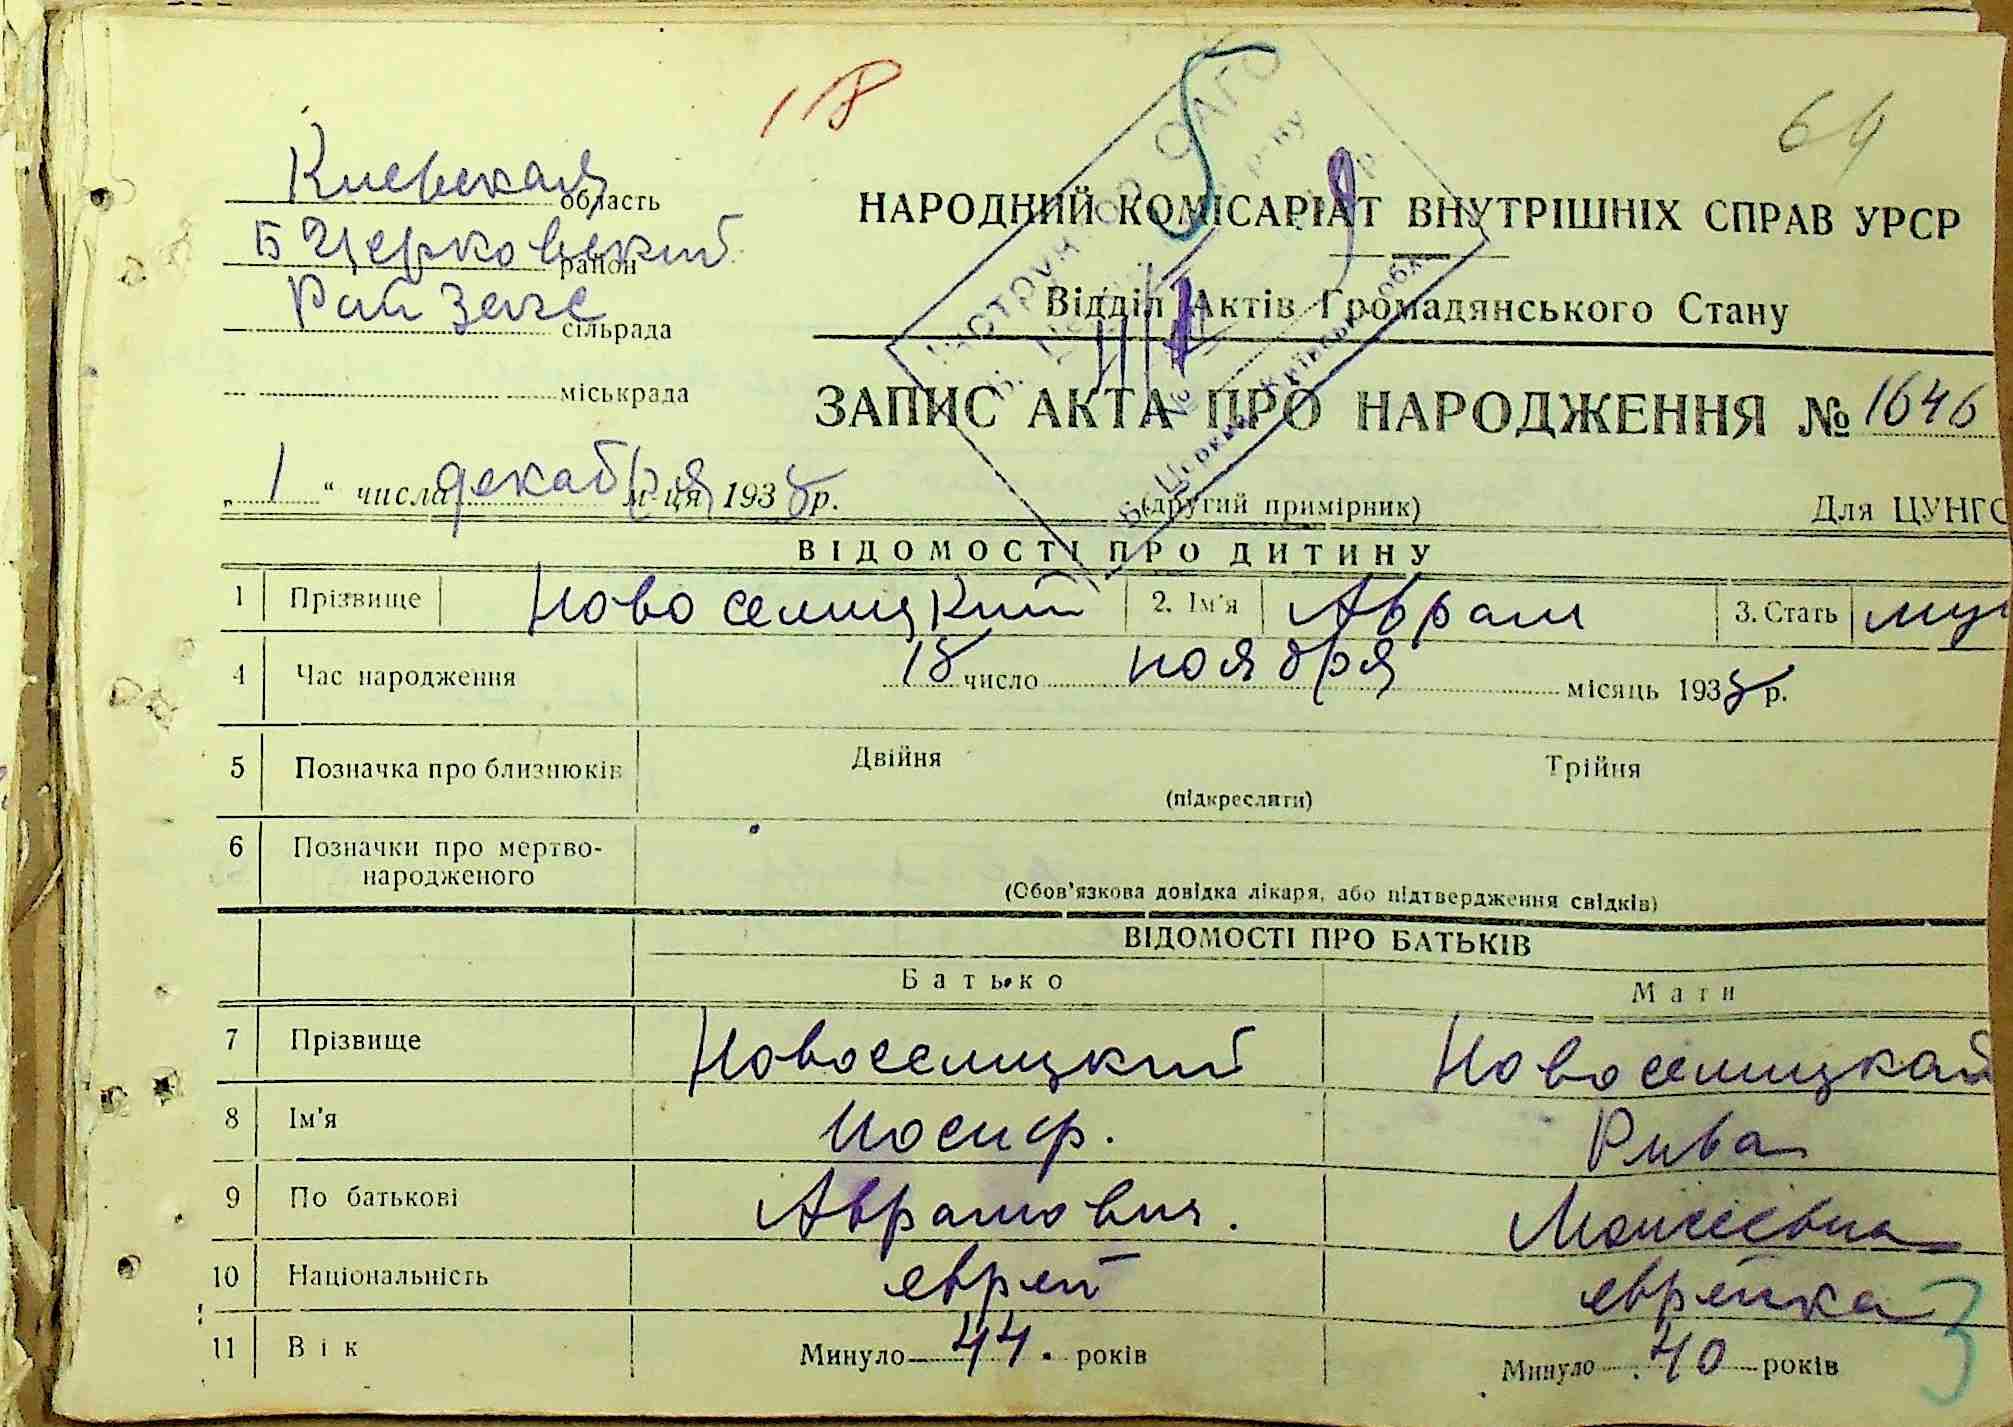 18
64
Киевская область
Б Церковский район
Рай Загс сільрада
міськрада
НАРОДНИЙ КОМІСАРІАТ ВНУТРІШНІХ СПРАВ УРСР
Відділ Актів Громадянського Стану
ЗАПИС АКТА ПРО НАРОДЖЕННЯ № 1646
„ 1 “ числа декабря м-ця 1938 р.
(другий примірник)
Для ЦУНГО
ВІДОМОСТІ ПРО ДИТИНУ
1 Прізвище Новоселицкий 2. Ім'я Аврам 3. Стать муж
4 Час народження 18 число ноября місяць 1938 р.
5 Позначка про близнюків Двійня Трійня
(підкреслити)
6 Позначки про мертво-
народженого
(Обов'язкова довідка лікаря, або підтвердження свідків)
ВІДОМОСТІ ПРО БАТЬКІВ
Батько Мати
7 Прізвище Новоселицкий Новоселицкая
8 Ім'я Иосиф. Рива
9 По батькові Аврамович. Моисеевна
10 Національність еврей еврейка
11 Вік Минуло 44. років Минуло 40 років
3